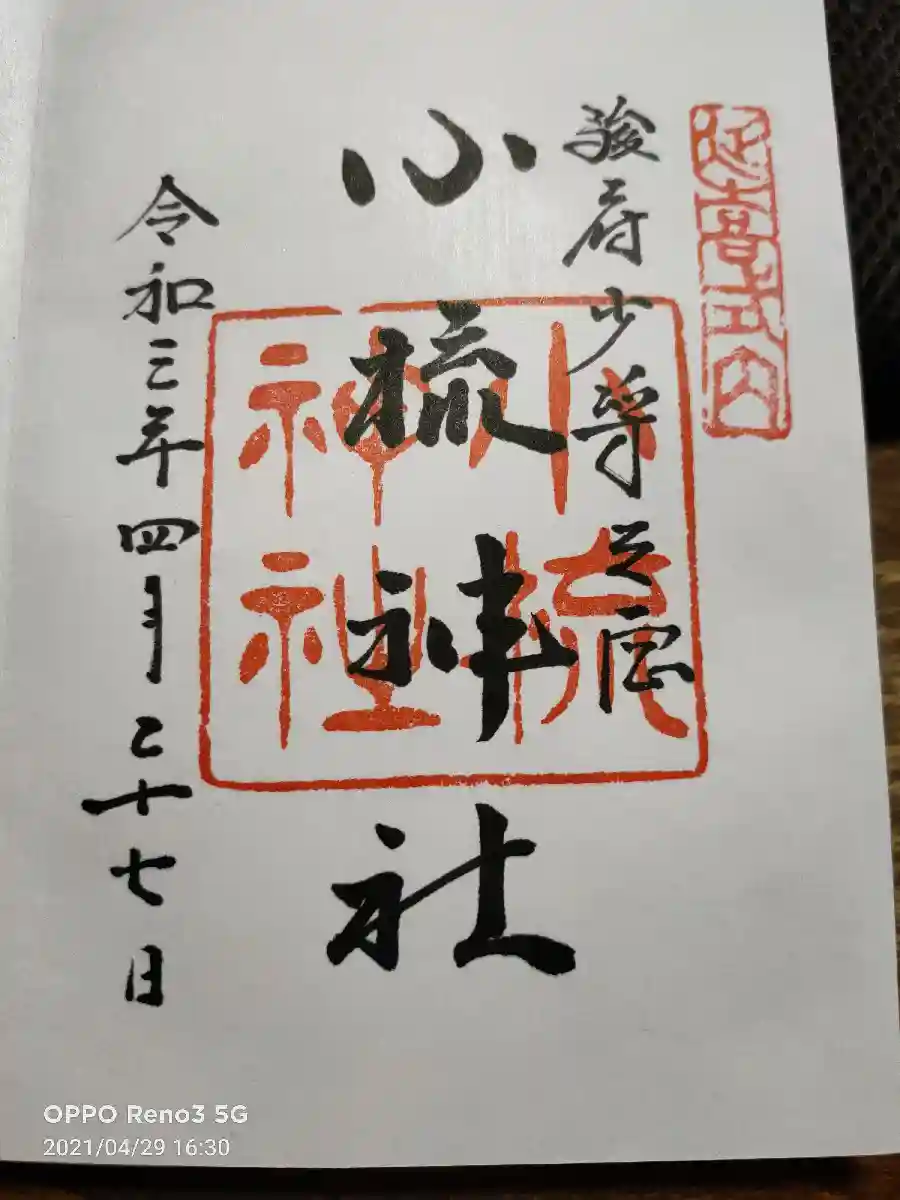 延喜式内
駿府少将之宮
小梳神社
小梳神社
令和三年四月二十七日
OPPO Reno3 5G
2021/04/29 16:30